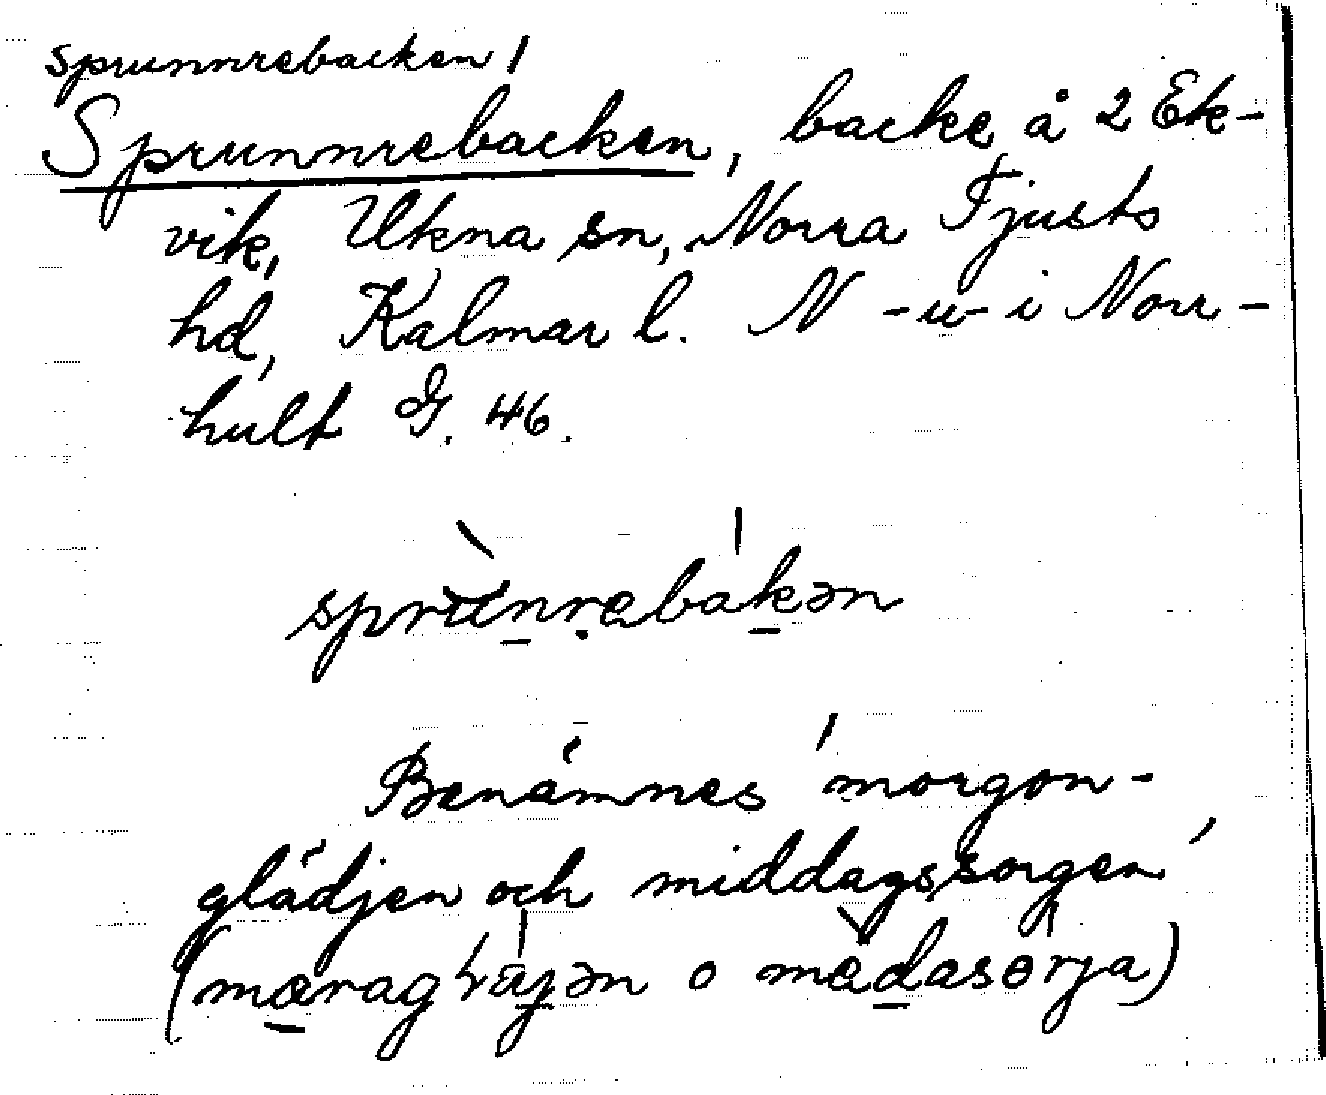 sprunnrebacken /
Sprunnrebacken, backe å 2 Ek-
vik, Ukna sn, Norra Tjusts
hd, Kalmar l. N -u- i Norr-
hult G. 46.
sprùnrebákən
Benämnes 'morgon-
glädjen och middagssorgen'
o